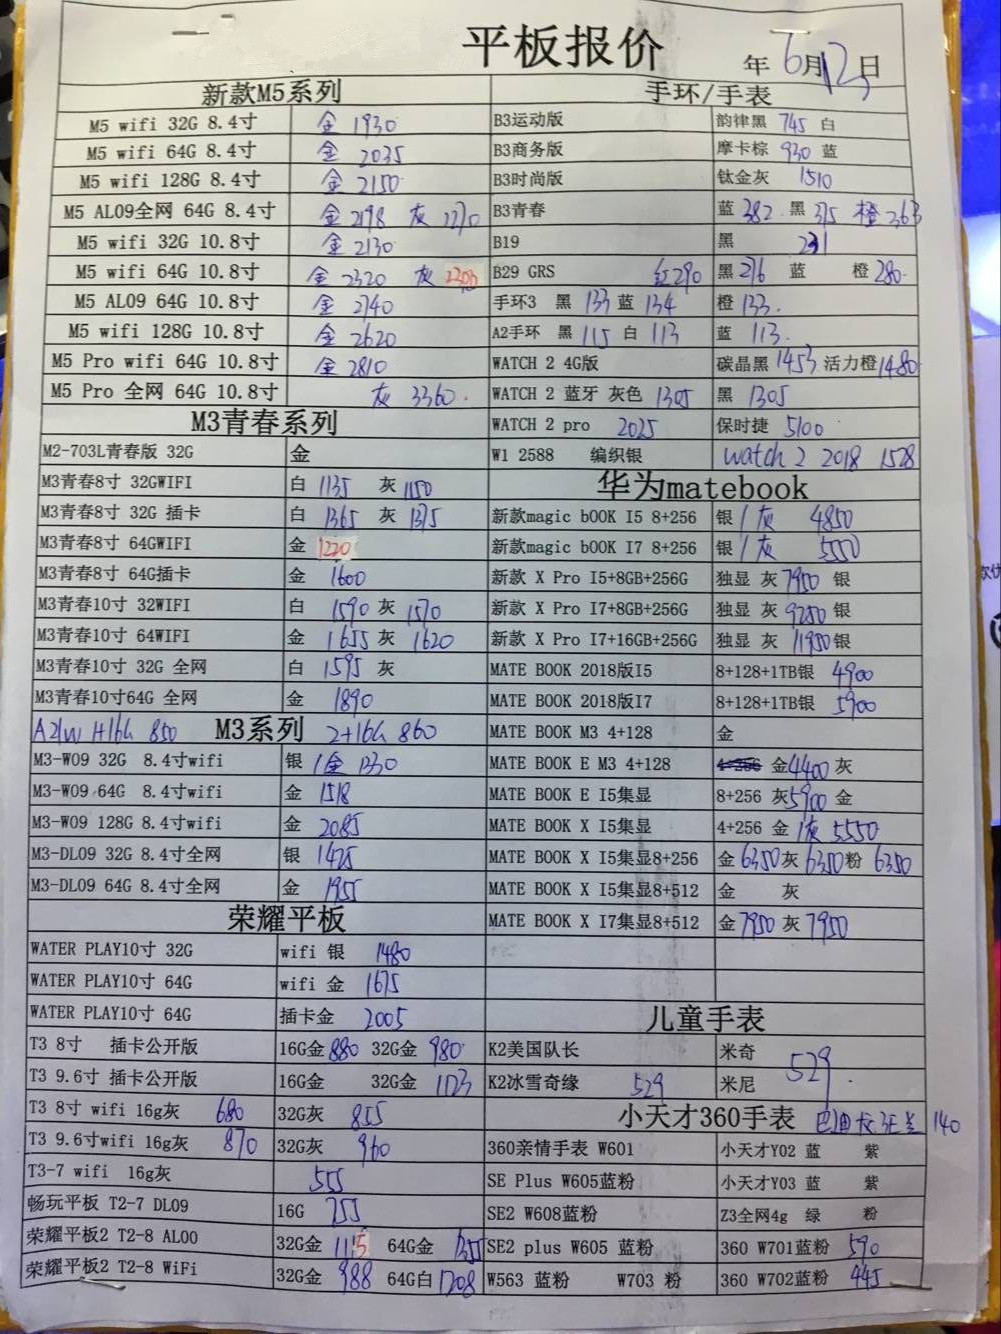 平板报价
年6月12日
新款M5系列
M5 wifi 32G 8.4寸 金 1930
M5 wifi 64G 8.4寸 金 2035
M5 wifi 128G 8.4寸 金 2150
M5 AL09全网 64G 8.4寸 金 2198 灰
M5 wifi 32G 10.8寸 金 2130
M5 wifi 64G 10.8寸 金 2320 灰
M5 AL09 64G 10.8寸 金 2740
M5 wifi 128G 10.8寸 金 2620
M5 Pro wifi 64G 10.8寸 金 2810
M5 Pro 全网 64G 10.8寸 灰 3360
M3青春系列
M2-703L青春版 32G 金
M3青春8寸 32GWIFI 白 1135 灰 1150
M3青春8寸 32G 插卡 白 1365 灰 1375
M3青春8寸 64GWIFI 金 1220
M3青春8寸 64G插卡 金 1600
M3青春10寸 32WIFI 白 1590 灰 1570
M3青春10寸 64WIFI 金 1655 灰 1620
M3青春10寸 32G 全网 白 1595 灰
M3青春10寸64G 全网 金 1890
850 M3系列 2+16G 860
M3-W09 32G 8.4寸wifi 银/金 1330
M3-W09 64G 8.4寸wifi 金 1518
M3-W09 128G 8.4寸wifi 金 2085
M3-DL09 32G 8.4寸全网 银 1475
M3-DL09 64G 8.4寸全网 金 1955
荣耀平板
WATER PLAY10寸 32G wifi 银 1480
WATER PLAY10寸 64G wifi 金 1675
WATER PLAY10寸 64G 插卡金 2005
T3 8寸 插卡公开版 16G金 880 32G金 980
T3 9.6寸 插卡公开版 16G金 32G金 1123
T3 8寸 wifi 16g灰 680 32G灰 855
T3 9.6寸wifi 16g灰 870 32G灰 960
T3-7 wifi 16g灰 555
畅玩平板 T2-7 DL09 16G 755
荣耀平板2 T2-8 AL00 32G金 1115 64G金 1355
荣耀平板2 T2-8 WiFi 32G金 988 64G白 1208
手环/手表
B3运动版 韵律黑 745 白
B3商务版 摩卡棕 930 蓝
B3时尚版 钛金灰 1510
B3青春 蓝 382 黑 375 橙 363
B19 黑 231
B29 GRS 红290 黑 276 蓝 橙 280
手环3 黑 133 蓝 134 橙 133
A2手环 黑 115 白 113 蓝 113
WATCH 2 4G版 碳晶黑 1453 活力橙 1480
WATCH 2 蓝牙 灰色 1305 黑 1305
WATCH 2 pro 2025 保时捷 5100
W1 2588 编织银 watch 2 2018 1528
华为matebook
新款magic bOOK I5 8+256 银/灰 4850
新款magic bOOK I7 8+256 银/灰 5550
新款 X Pro I5+8GB+256G 独显 灰 7950 银
新款 X Pro I7+8GB+256G 独显 灰 9250 银
新款 X Pro I7+16GB+256G 独显 灰 11950 银
MATE BOOK 2018版I5 8+128+1TB银 4900
MATE BOOK 2018版I7 8+128+1TB银 5900
MATE BOOK M3 4+128 金
MATE BOOK E M3 4+128 4+256 金4400 灰
MATE BOOK E I5集显 8+256 灰5900 金
MATE BOOK X I5集显 4+256 金/灰 5550
MATE BOOK X I5集显8+256 金 6350 灰 6350 粉 6350
MATE BOOK X I5集显8+512 金 灰
MATE BOOK X I7集显8+512 金 7950 灰 7950
儿童手表
K2美国队长 米奇 529
K2冰雪奇缘 529 米尼
小天才360手表 140
360亲情手表 W601 小天才Y02 蓝 紫
SE Plus W605蓝粉 小天才Y03 蓝 紫
SE2 W608蓝粉 Z3全网4g 绿 粉
SE2 plus W605 蓝粉 360 W701蓝粉 590
W563 蓝粉 W703 粉 360 W702蓝粉 445